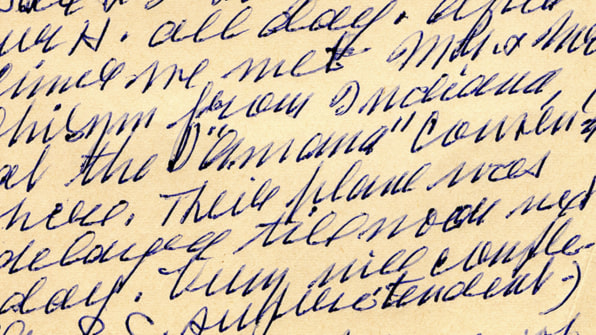 all day.
we met Mr. & Mr
from Indiana,
at the "Amana" Conven=
here. Their plane was
delayed till noon next
day. Very nice couple
S.S. Superintendent)